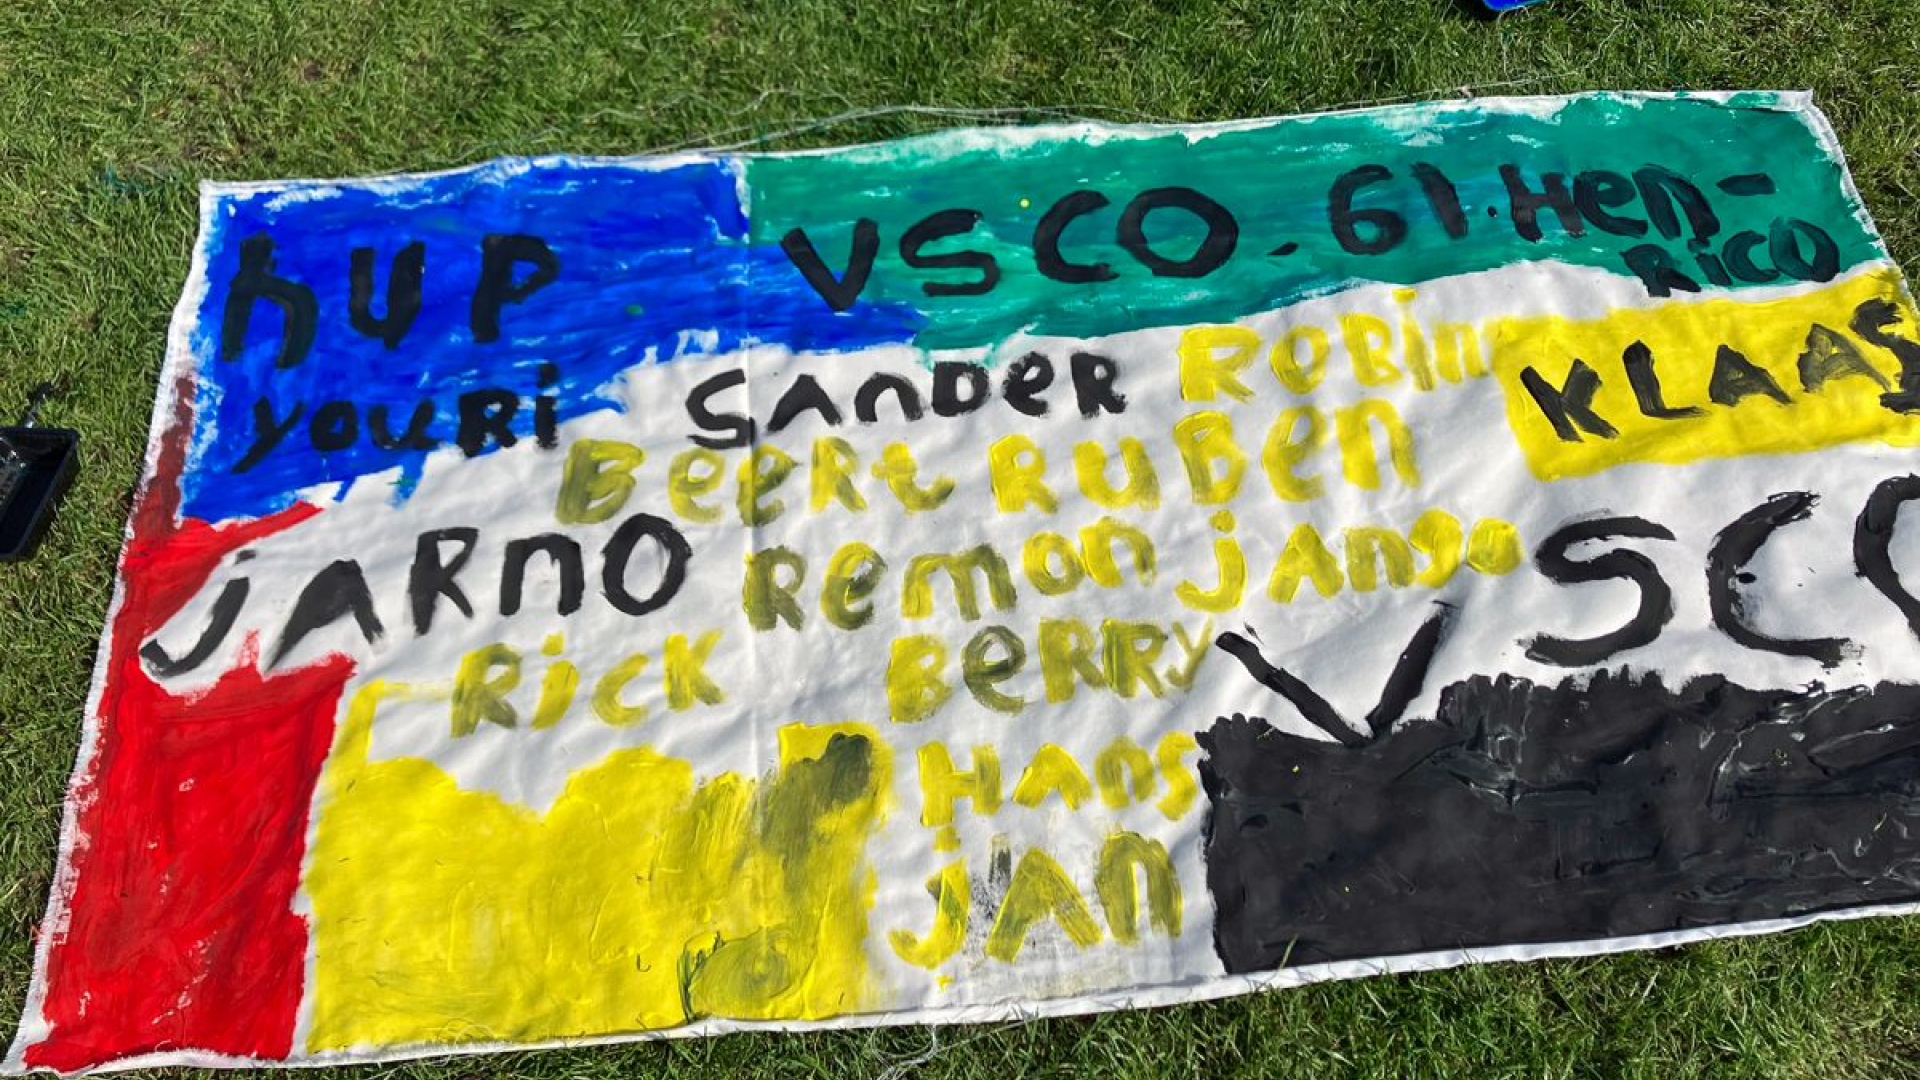 hUP VSCO.61.Hen-
RiCO
youRi SAnDeR RoBin KLAAS
BeeRt RuBen
jARnO Remon jAngo VSCO
Rick BeRRy
HAns
jAn